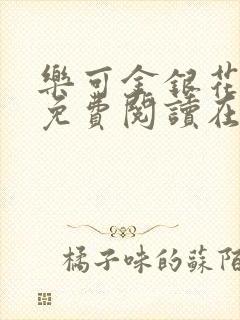 樂可金銀花
免費閱讀在
橘子味的蘇陌